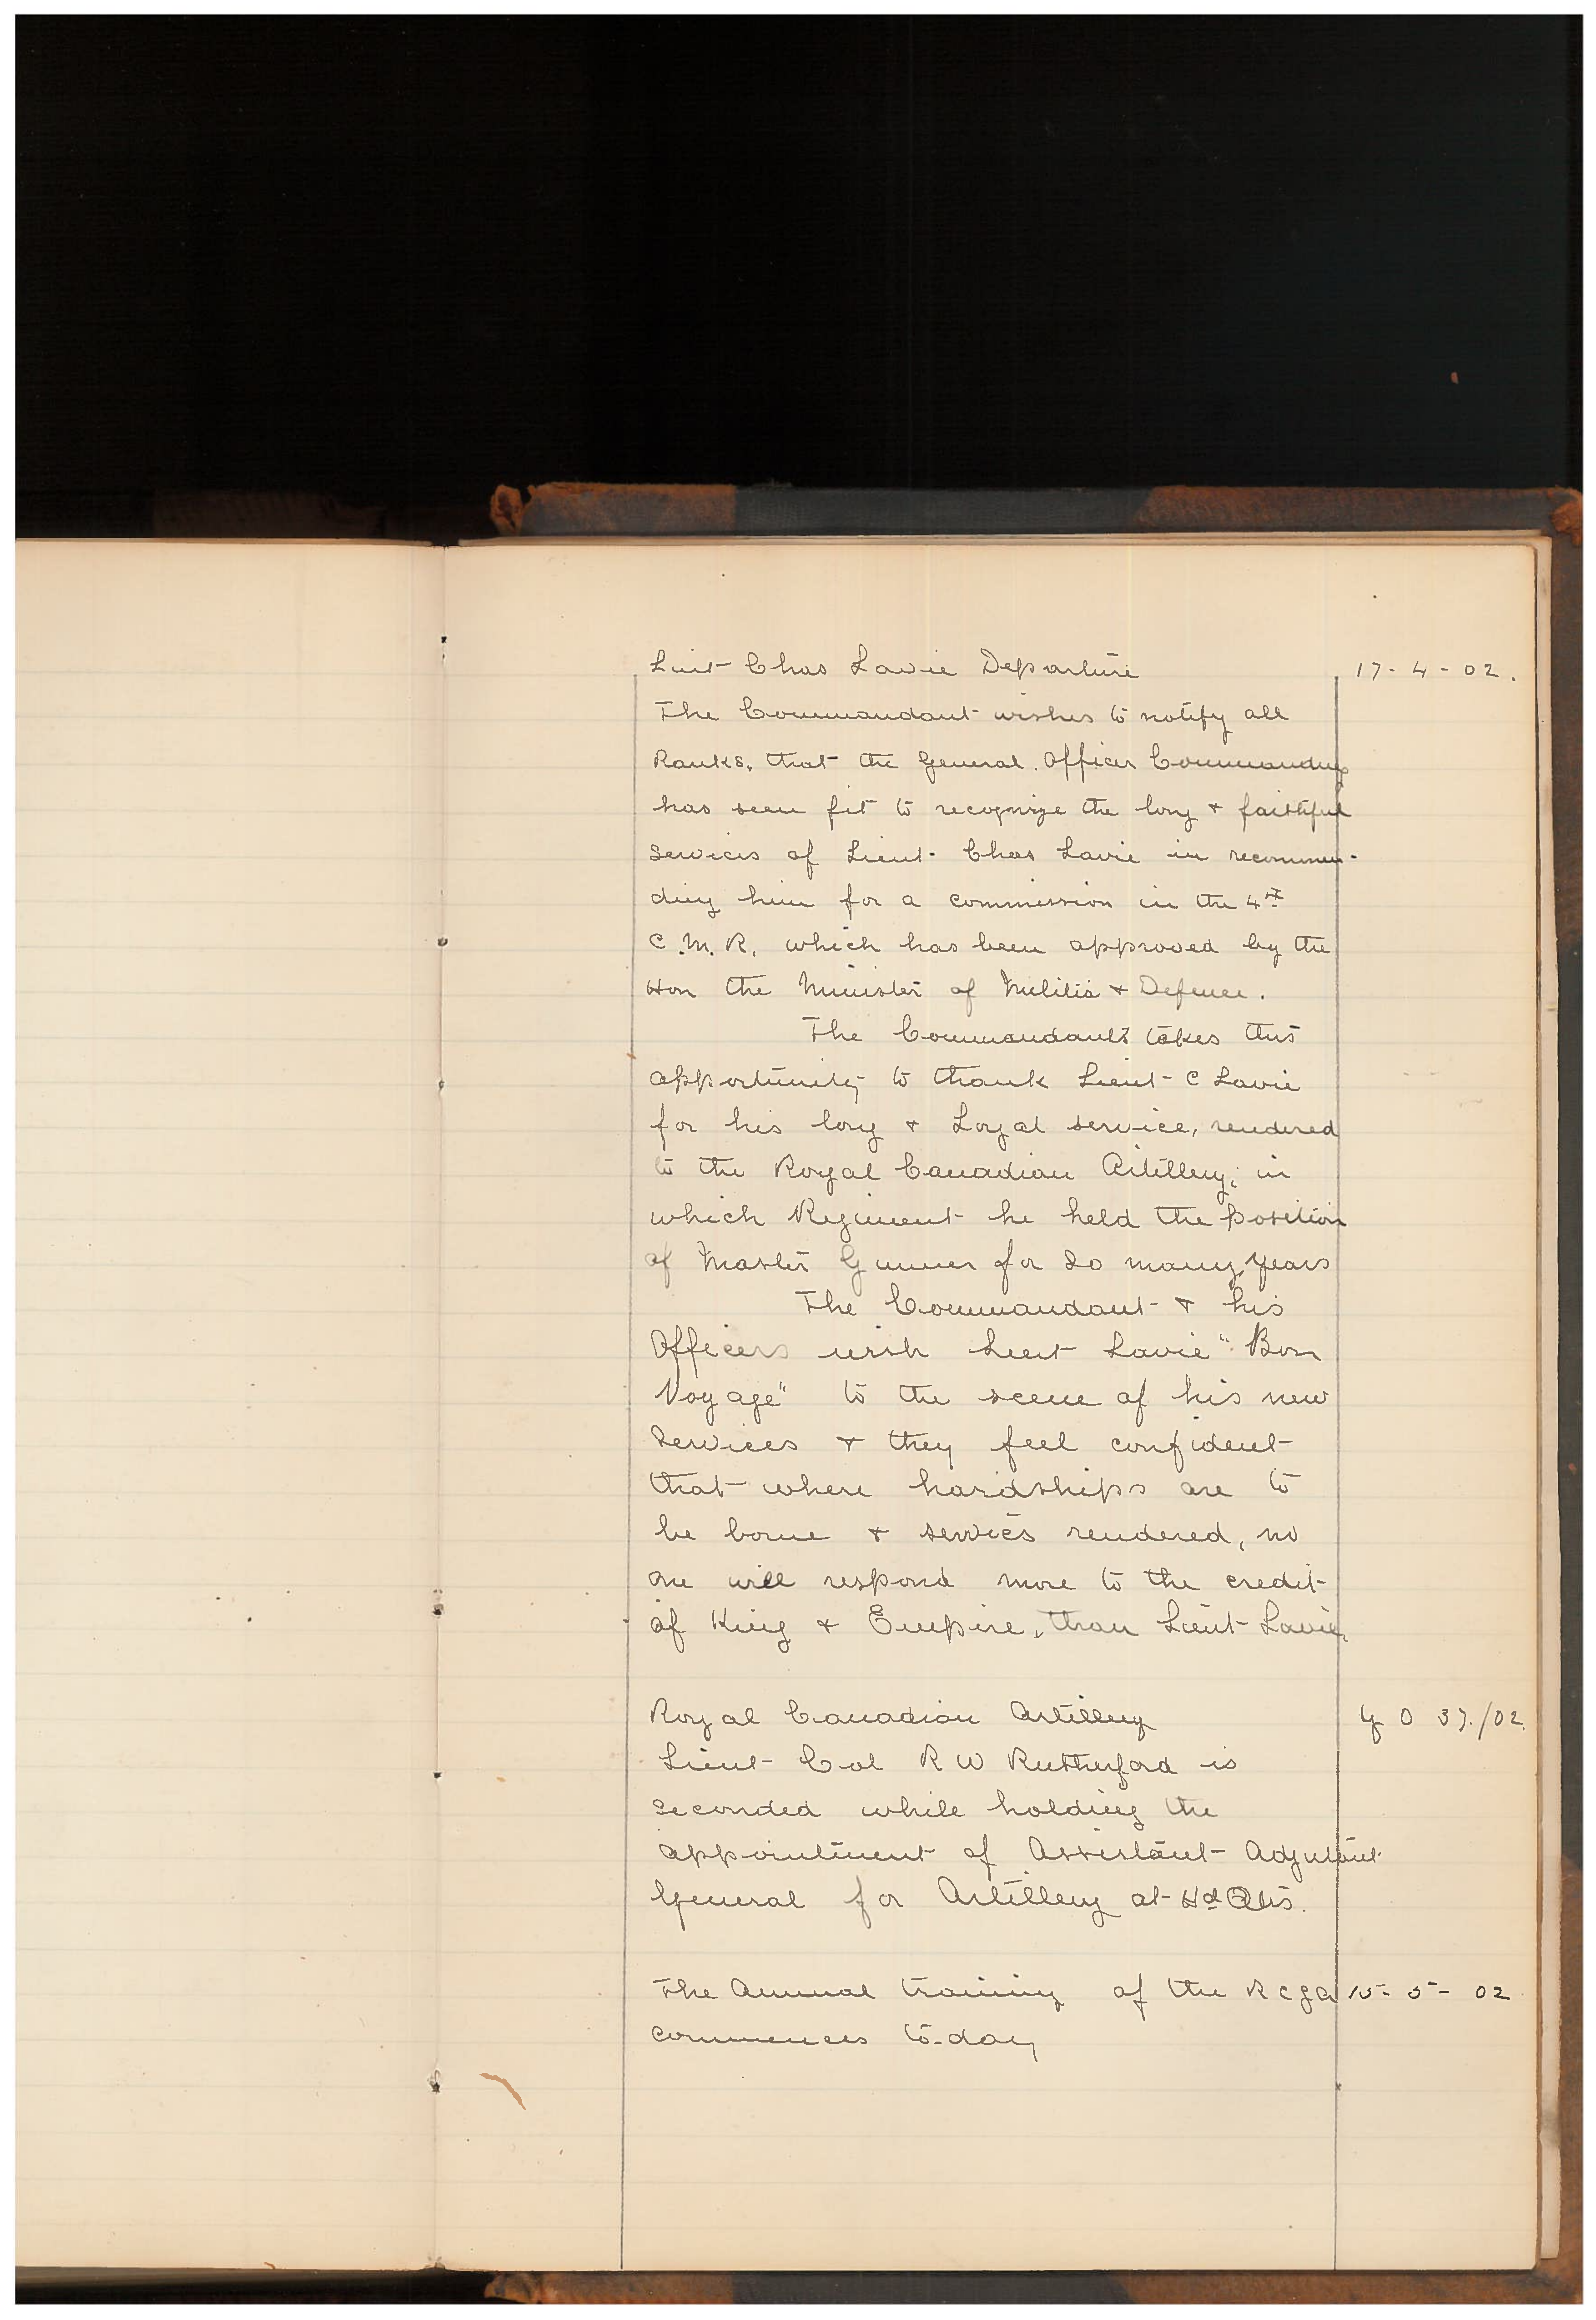 Lieut Chas Lavie Departure 17-4-02.
The Commandant wishes to notify all
Ranks, that the General Officer Commanding
has seen fit to recognize the long & faithful
services of Lieut Chas Lavie in recommen-
ding him for a commission in the 4th
C.M.R. which has been approved by the
Hon the Minister of Militia & Defence.
The Commandant takes this
opportunity to thank Lieut C Lavie
for his long & Loyal service, rendered
to the Royal Canadian Artillery, in
which Regiment he held the position
of Master Gunner for so many years
The Commandant & his
Officers wish Lieut Lavie "Bon
Voyage" to the scene of his new
Services & they feel confident
that where hardships are to
be borne & services rendered, no
one will respond more to the credit
of King & Empire, than Lieut Lavie.
Royal Canadian Artillery G O 37/02.
Lieut Col R W Rutherford is
seconded while holding the
appointment of Assistant Adjutant
General for Artillery at Hd Qtrs.
The Annual training of the R C G A 15-5-02
commences to-day